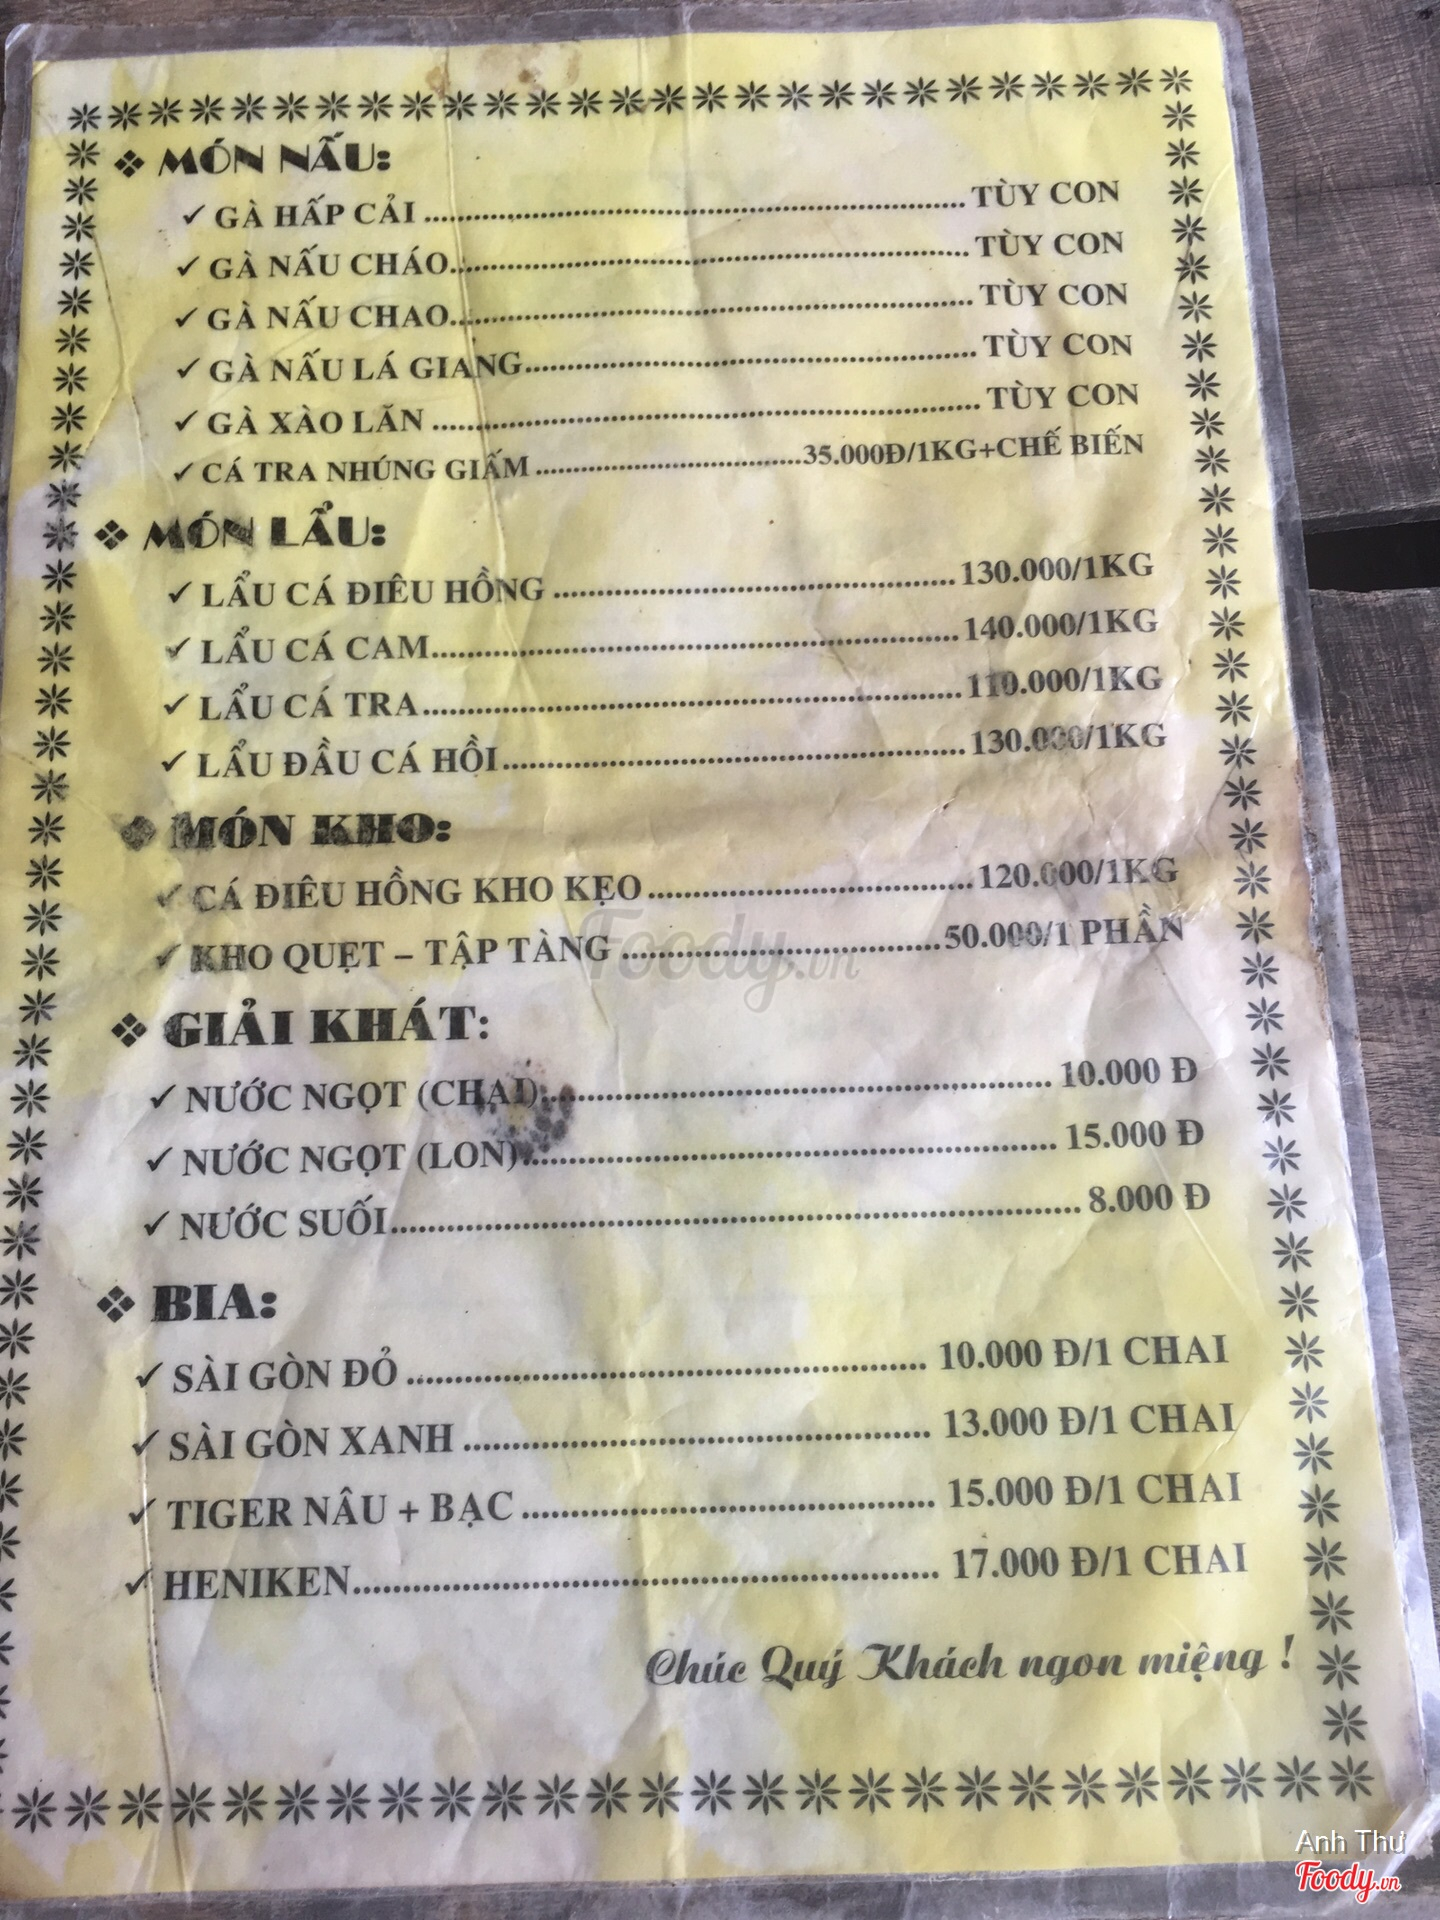 ❖ MÓN NẤU:
✓ GÀ HẤP CẢI ........ TÙY CON
✓ GÀ NẤU CHÁO ........ TÙY CON
✓ GÀ NẤU CHAO ........ TÙY CON
✓ GÀ NẤU LÁ GIANG ........ TÙY CON
✓ GÀ XÀO LĂN ........ TÙY CON
✓ CÁ TRA NHÚNG GIẤM ........ 35.000Đ/1KG+CHẾ BIẾN
❖ MÓN LẨU:
✓ LẨU CÁ ĐIÊU HỒNG ........ 130.000/1KG
✓ LẨU CÁ CAM ........ 140.000/1KG
✓ LẨU CÁ TRA ........ 110.000/1KG
✓ LẨU ĐẦU CÁ HỒI ........ 130.000/1KG
❖ MÓN KHO:
✓ CÁ ĐIÊU HỒNG KHO KẸO ........ 120.000/1KG
✓ KHO QUẸT – TẬP TÀNG ........ 50.000/1 PHẦN
Foody.vn
❖ GIẢI KHÁT:
✓ NƯỚC NGỌT (CHAI) ........ 10.000 Đ
✓ NƯỚC NGỌT (LON) ........ 15.000 Đ
✓ NƯỚC SUỐI ........ 8.000 Đ
❖ BIA:
✓ SÀI GÒN ĐỎ ........ 10.000 Đ/1 CHAI
✓ SÀI GÒN XANH ........ 13.000 Đ/1 CHAI
✓ TIGER NÂU + BẠC ........ 15.000 Đ/1 CHAI
✓ HENIKEN ........ 17.000 Đ/1 CHAI
Chúc Quý Khách ngon miệng !
Anh Thư
Foody.vn